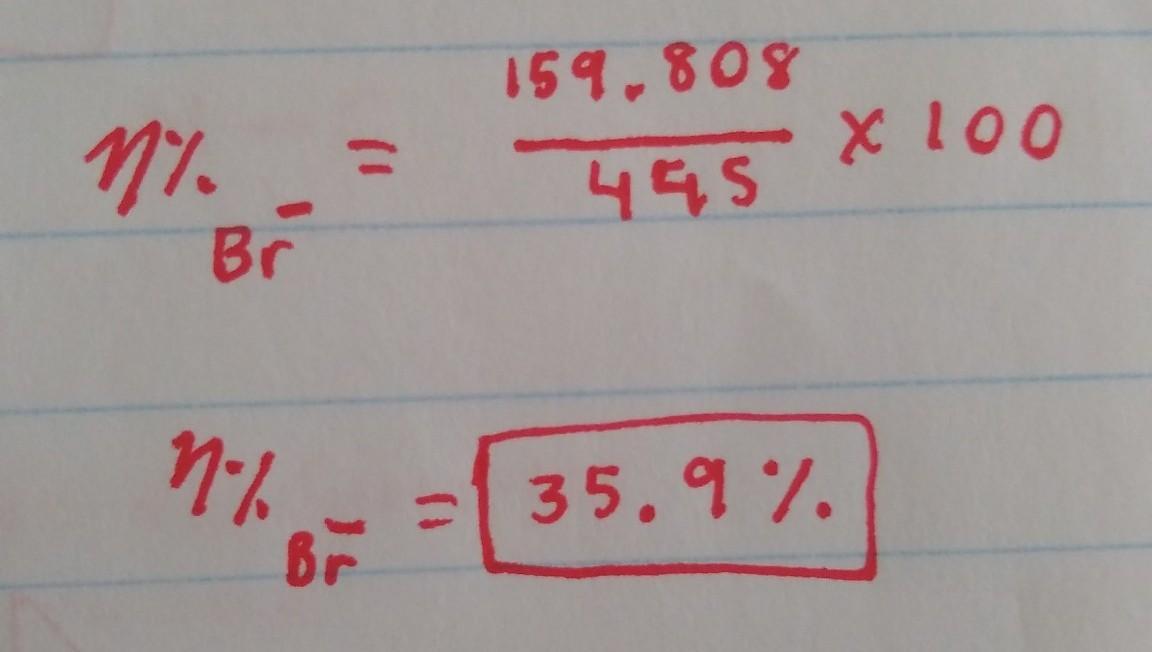 η%Br⁻ = 159.808 / 445 × 100
η%Br⁻ = 35.9%